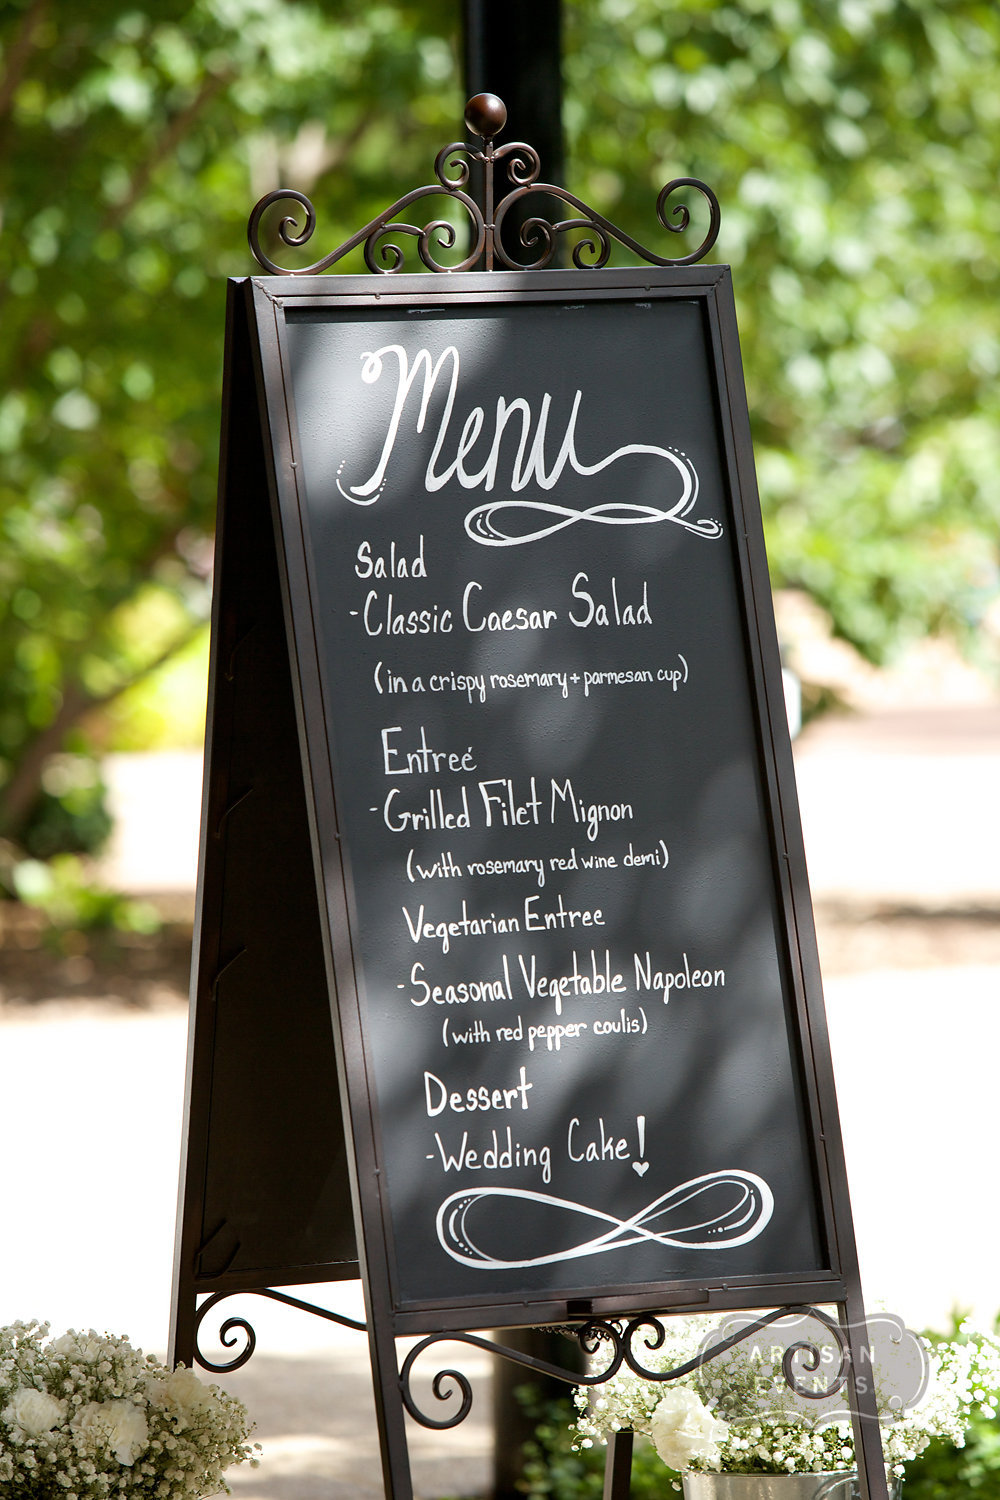 Menu
Salad
-Classic Caesar Salad
(in a crispy rosemary + parmesan cup)
Entreé
-Grilled Filet Mignon
(with rosemary red wine demi)
Vegetarian Entree
-Seasonal Vegetable Napoleon
(with red pepper coulis)
Dessert
-Wedding Cake!
ARTISAN
EVENTS